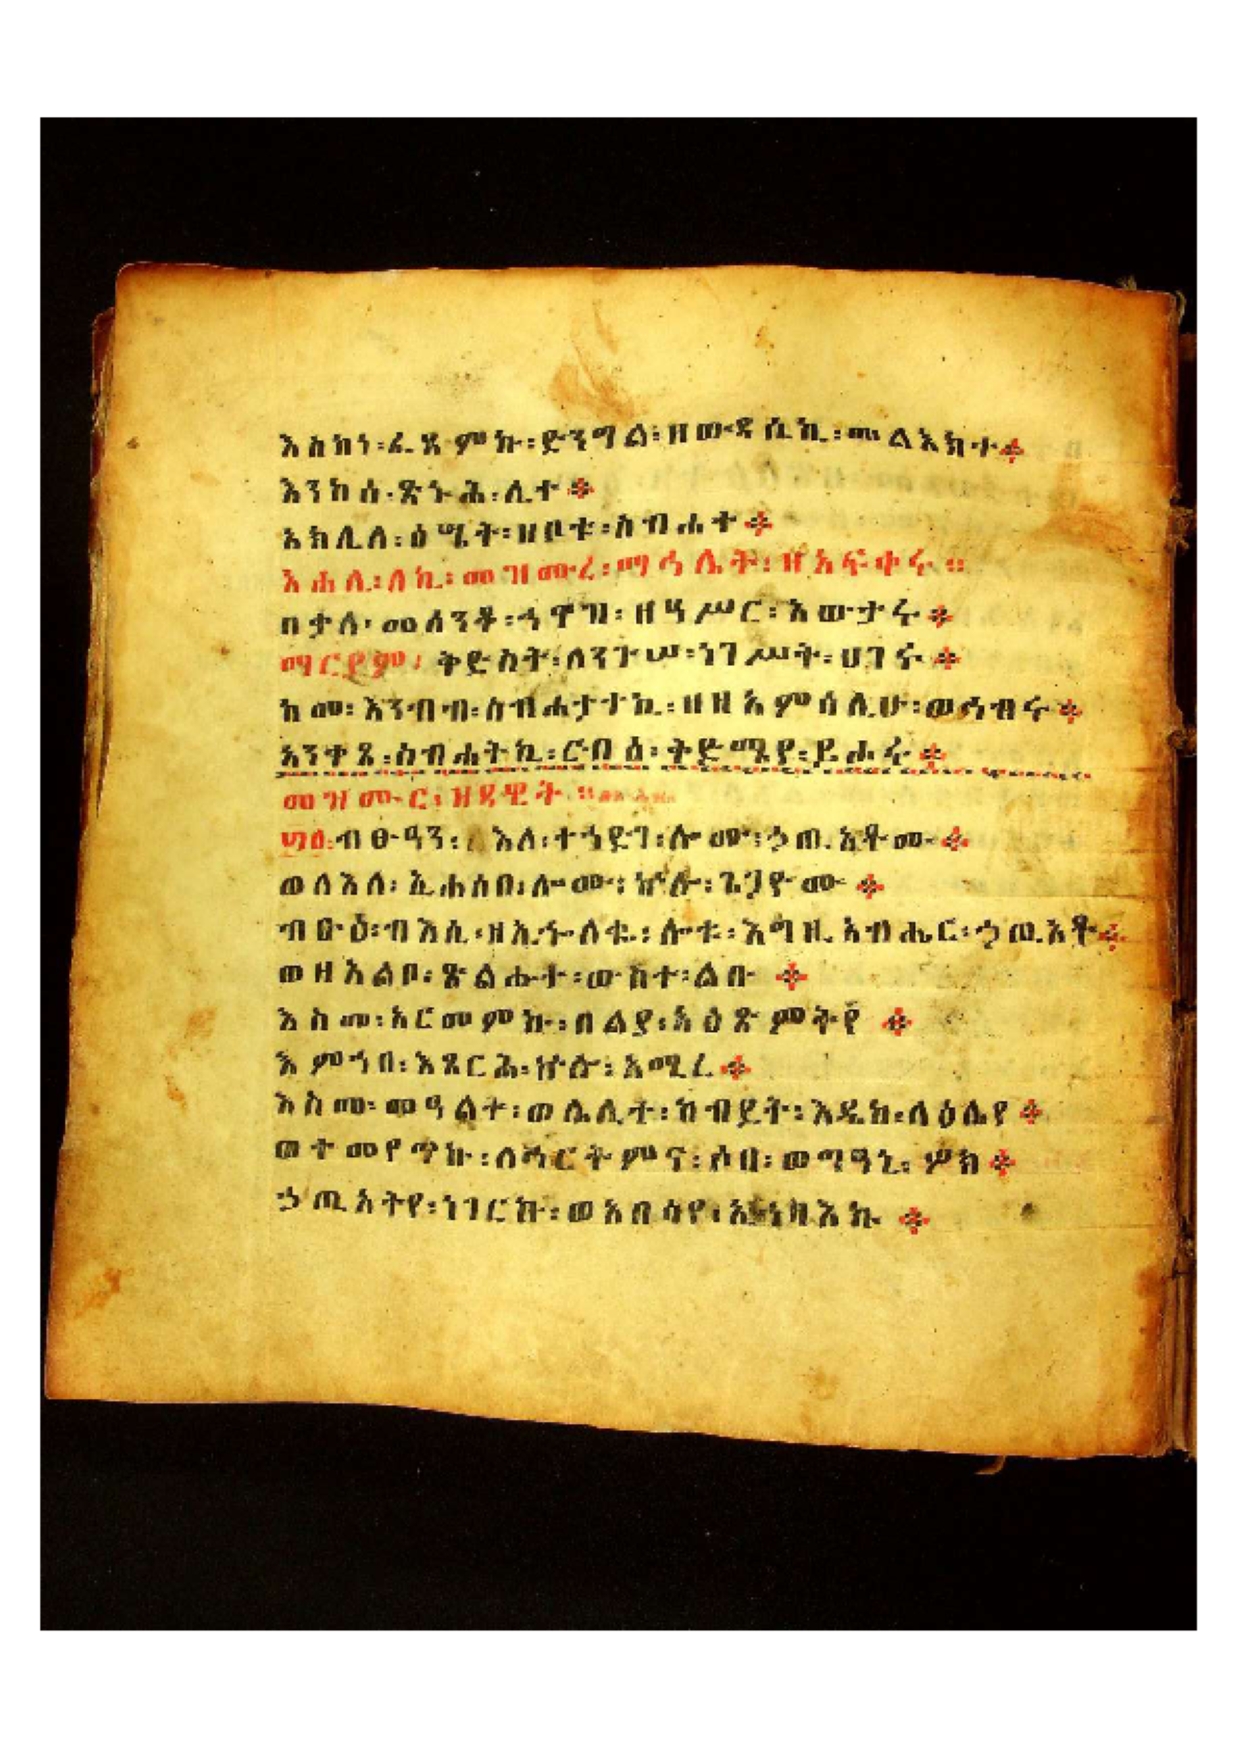 እስከነ፡ፈጸምኩ፡ድንግል፡ዘውዳሴኪ፡መልእክተ፨
እንከሰ፡ጽኑሕ፡ሊተ፨
አክሊለ፡ዕሤት፡ዘቦቱ፡ስብሐተ፨
እሐሊ፡ለኪ፡መዝሙረ፡ማኅሌት፡ዘአፍቀሩ።
በታለ፡መሰንቆ፡ኀዋዝ፡ዘዓሥር፡አውታሩ፨
ማርያም፡ ቅድስት፡ለንጉሠ፡ነገሥት፡ሀገሩ፨
ከመ፡እንብብ፡ስብሐታተኪ፡ዘዘአምሳሊሁ፡ወኅብሩ፨
አንቀጸ፡ስብሐትኪ፡ርቡዕ፡ቅድሜየ፡ይሐሩ፨
መዝሙር፡ዝዳዊት።
፴፩፡ብፁዓን፡ እለ፡ተኀድገ፡ሎሙ፡ኃጢአቶሙ፨
ወለእለ፡ኢሐሰበ፡ሎሙ፡ኵሉ፡ጌጋዮሙ፨
ብፁዕ፡ብእሲ፡ዘኢኍለቈ፡ሎቱ፡እግዚአብሔር፡ኃጢአቶ፨
ወዘአልቦ፡ጽልሑተ፡ውስተ፡ልቡ ፨
እስመ፡አርመምኩ፡በልያ፡አዕጽምትየ ፨
እምኀበ፡እጸርሕ፡ኵሉ፡አሚረ፨
እስመ፡መዓልተ፡ወሌሊተ፡ከብደት፡እዴከ፡ላዕሌየ፨
ወተመየጥኩ፡ለሕርትምና፡ሶበ፡ወግዓኒ፡ሦክ፨
ኃጢአትየ፡ነገርኩ፡ወአበሳየ፡ ፨